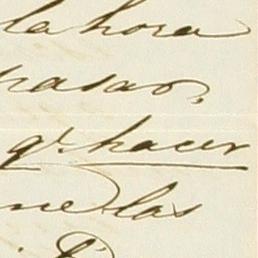 la hora
pasar,
qᵉ hacer
me las